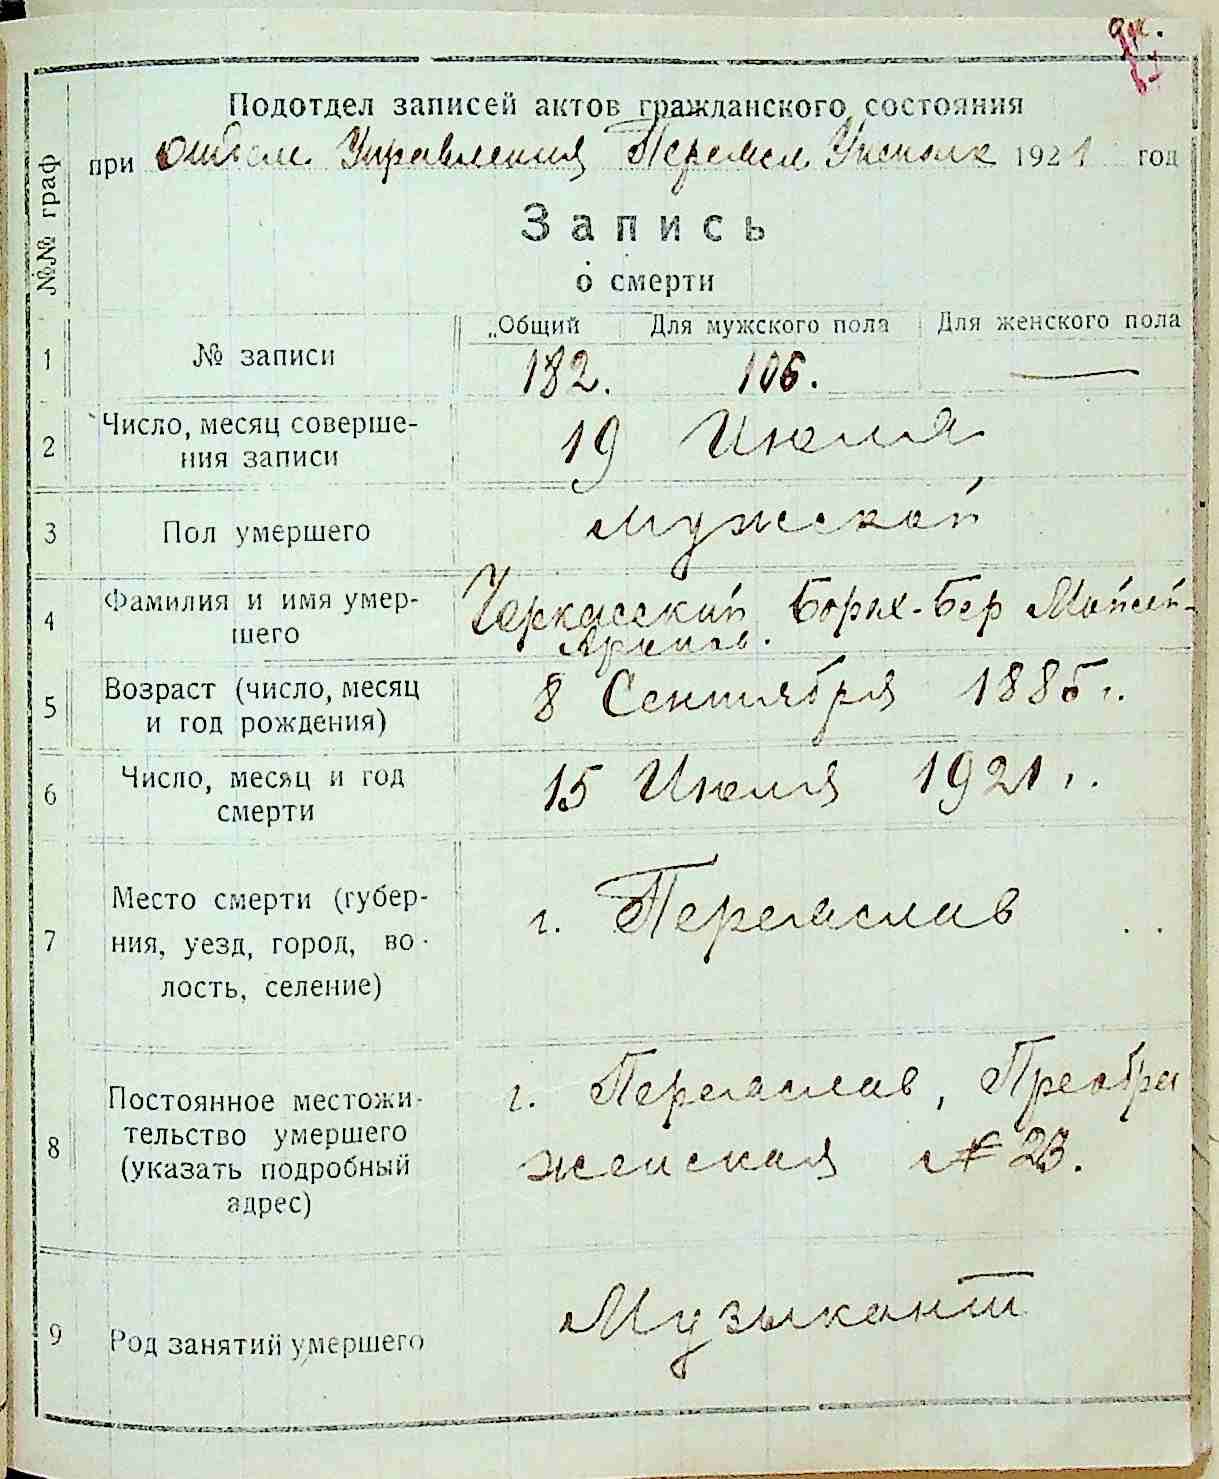 Подотдел записей актов гражданского состояния
при отдел. Управления Переясл. Уисполк 1921 год
№№ граф
Запись
о смерти
Общий Для мужского пола Для женского пола
1 № записи 182. 106. —
2 Число, месяц соверше-
ния записи 19 Июля
3 Пол умершего мужской
4 Фамилия и имя умер-
шего Черкасский Борух-Бер Мойсей-
Аронов.
5 Возраст (число, месяц
и год рождения) 8 Сентября 1885 г.
6 Число, месяц и год
смерти 15 Июля 1921 г.
7 Место смерти (губер-
ния, уезд, город, во-
лость, селение) г. Переяслав
8 Постоянное местожи-
тельство умершего
(указать подробный
адрес) г. Переяслав, Преобра
женская № 23.
9 Род занятий умершего Музыкант